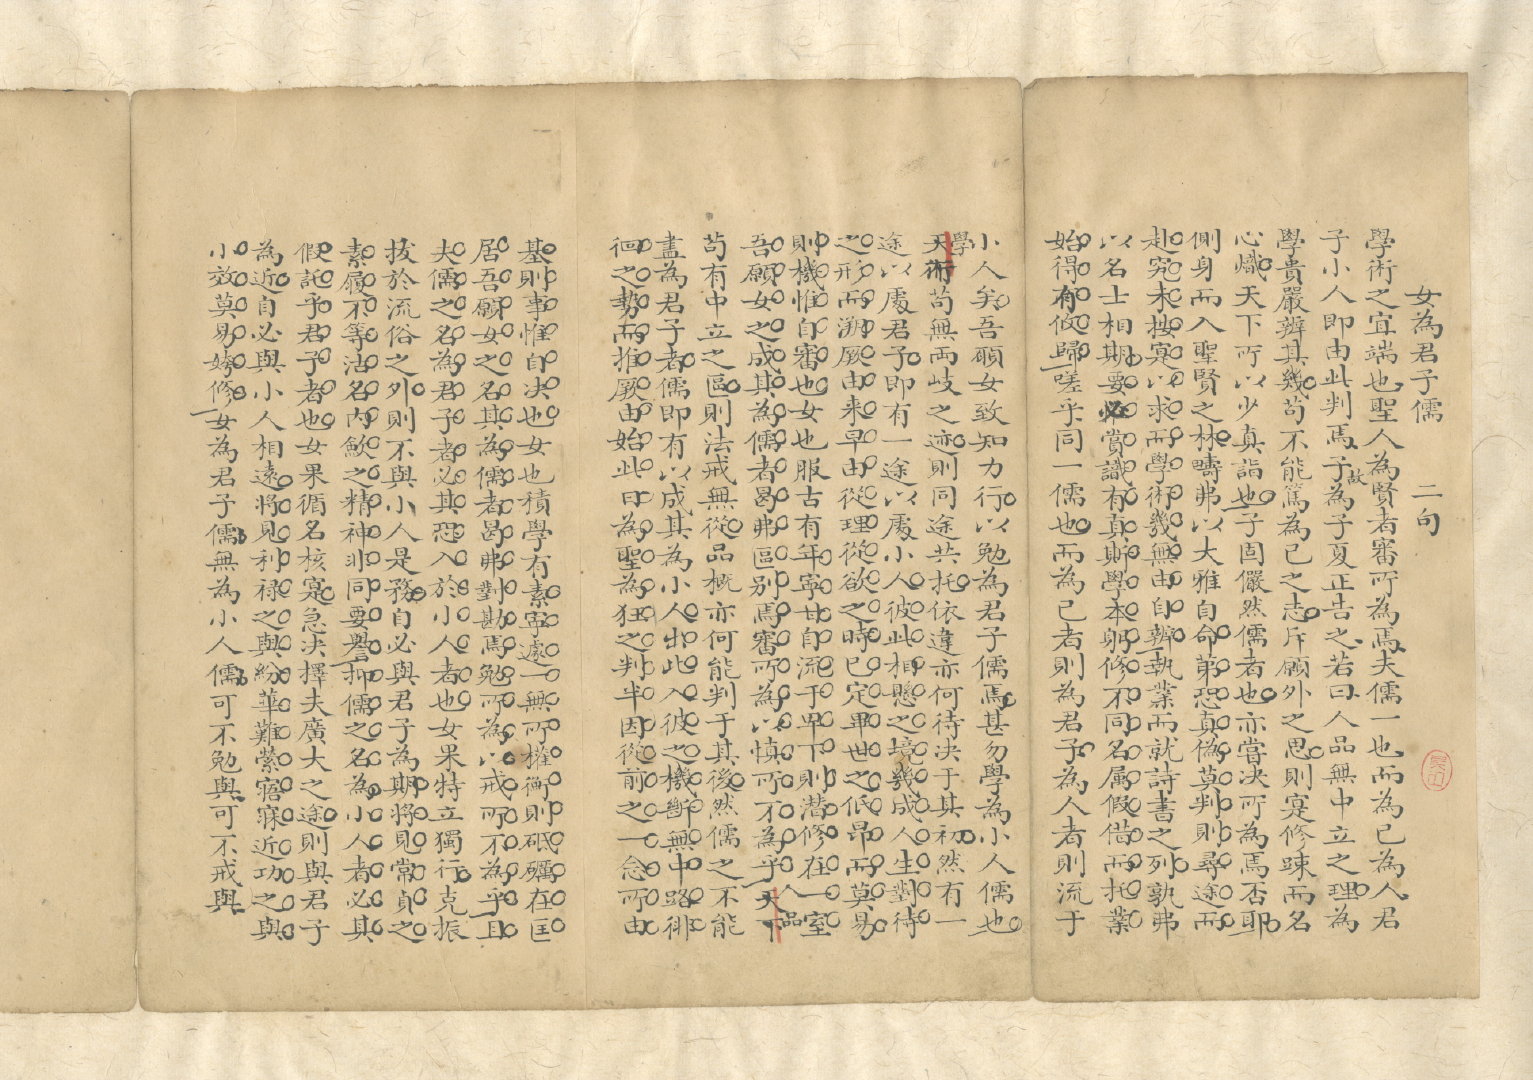 女為君子儒　二句
學術之宜端也聖人為賢者審所為焉夫儒一也而為己為人君
子小人即由此判焉故子為子夏正告之若曰人品無中立之理為
學貴嚴辨其幾苟不能篤為己之志斥願外之思則寔修踈而名
心熾天下所以少真詣也子固儼然儒者也亦嘗決所為焉否耶
側身而入聖賢之林疇弗以大雅自命第恐真偽莫判則尋途而
赴究未按寔以求而學術幾無由自辨執業而就詩書之列孰弗
以名士相期要必賞識有真斯學本躬修不同名属假借而托業
始得有攸歸嗟乎同一儒也而為己者則為君子為人者則流于
小人矣吾願女致知力行以勉為君子儒焉甚勿學為小人儒也
學術苟無兩岐之迹則同途共托依違亦何待決于其初然有一
途以處君子即有一途以處小人彼此相懸之境幾成人生對待
之形而溯厥由来早由從理從欲之時已定畢世之低昂而莫易
則機惟自審也女也服古有年寧甘自流于卑下則潜修在一室
吾願女之成其為儒者曷弗區别焉審所為以慎所不為乎人品
苟有中立之區則法戒無從品概亦何能判于其後然儒之不能
盡為君子者儒即有以成其為小人出此入彼之機斷無中路徘
徊之勢而推厥由始此曰為聖為狂之判半因從前之一念所由
基則事惟自決也女也積學有素寧遂一無所權衡則砥礪在匡
居吾願女之名其為儒者曷弗對勘焉勉所為以戒所不為乎且
夫儒之名為君子者必其恐入於小人者也女果特立獨行克振
拔於流俗之外則不與小人是務自必與君子為期將見常貞之
素履不等沽名内歛之精神非同要譽抑儒之名為小人者必其
假託乎君子者也女果循名核寔急決擇夫廣大之途則與君子
為近自必與小人相遠將見利禄之與紛華難縈寤寐近功之與
小效莫易姱修女為君子儒無為小人儒可不勉與可不戒與